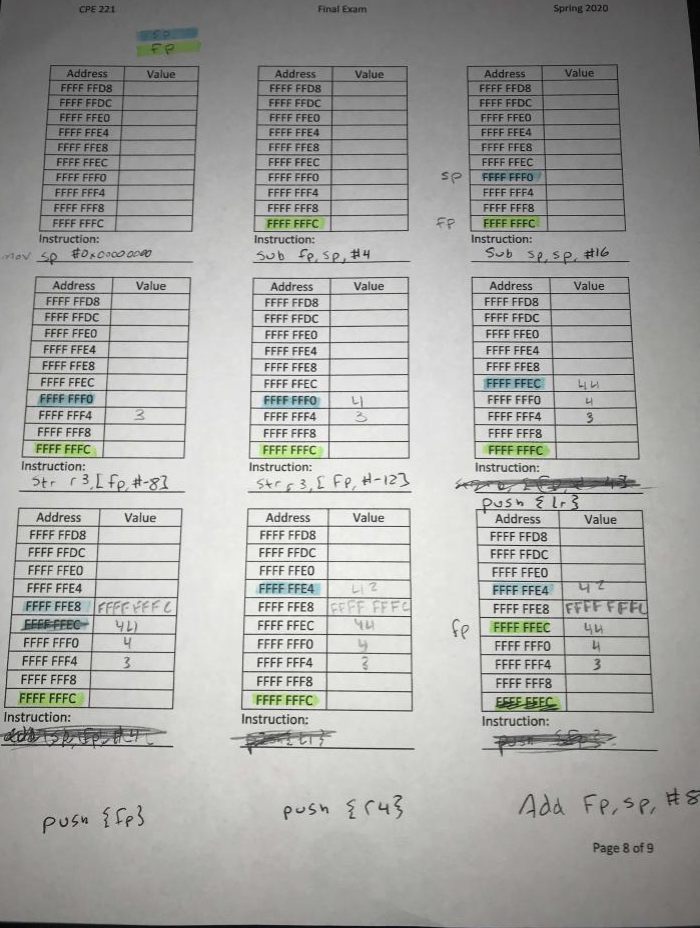 CPE 221 Final Exam Spring 2020
sp
FP
Address Value
FFFF FFD8
FFFF FFDC
FFFF FFE0
FFFF FFE4
FFFF FFE8
FFFF FFEC
FFFF FFF0
FFFF FFF4
FFFF FFF8
FFFF FFFC
Instruction:
mov sp #0x00000000
Address Value
FFFF FFD8
FFFF FFDC
FFFF FFE0
FFFF FFE4
FFFF FFE8
FFFF FFEC
FFFF FFF0
FFFF FFF4
FFFF FFF8
FFFF FFFC
Instruction:
Sub fp, sp, #4
Address Value
FFFF FFD8
FFFF FFDC
FFFF FFE0
FFFF FFE4
FFFF FFE8
FFFF FFEC
sp FFFF FFF0
FFFF FFF4
FFFF FFF8
FP FFFF FFFC
Instruction:
Sub sp, sp, #16
Address Value
FFFF FFD8
FFFF FFDC
FFFF FFE0
FFFF FFE4
FFFF FFE8
FFFF FFEC
FFFF FFF0
FFFF FFF4 3
FFFF FFF8
FFFF FFFC
Instruction:
Str r3, [fp, #-8]
Address Value
FFFF FFD8
FFFF FFDC
FFFF FFE0
FFFF FFE4
FFFF FFE8
FFFF FFEC
FFFF FFF0 4
FFFF FFF4 3
FFFF FFF8
FFFF FFFC
Instruction:
Str r3, [FP, #-12]
Address Value
FFFF FFD8
FFFF FFDC
FFFF FFE0
FFFF FFE4
FFFF FFE8
FFFF FFEC 44
FFFF FFF0 4
FFFF FFF4 3
FFFF FFF8
FFFF FFFC
Instruction:
push {lr}
Address Value
FFFF FFD8
FFFF FFDC
FFFF FFE0
FFFF FFE4
FFFF FFE8 FFFF FFFC
FFFF FFEC 44
FFFF FFF0 4
FFFF FFF4 3
FFFF FFF8
FFFF FFFC
Instruction:
push {fp}
Address Value
FFFF FFD8
FFFF FFDC
FFFF FFE0
FFFF FFE4 42
FFFF FFE8 FFFF FFFC
FFFF FFEC 44
FFFF FFF0 4
FFFF FFF4 3
FFFF FFF8
FFFF FFFC
Instruction:
push {r4}
Address Value
FFFF FFD8
FFFF FFDC
FFFF FFE0
FFFF FFE4 42
FFFF FFE8 FFFF FFFC
fp FFFF FFEC 44
FFFF FFF0 4
FFFF FFF4 3
FFFF FFF8
FFFF FFFC
Instruction:
Add FP, sp, #8
Page 8 of 9